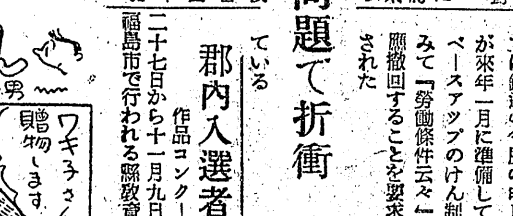 が來年一月に準備して
ベースアップのけん制
みて『勞働條件云々』
照撤回することを要求
された
題で折衝
ている
郡内入選者
作品コンクー
二十七日から十一月九日
福島市で行われる縣敎育
ん
男
ワキ子さん
贈物します